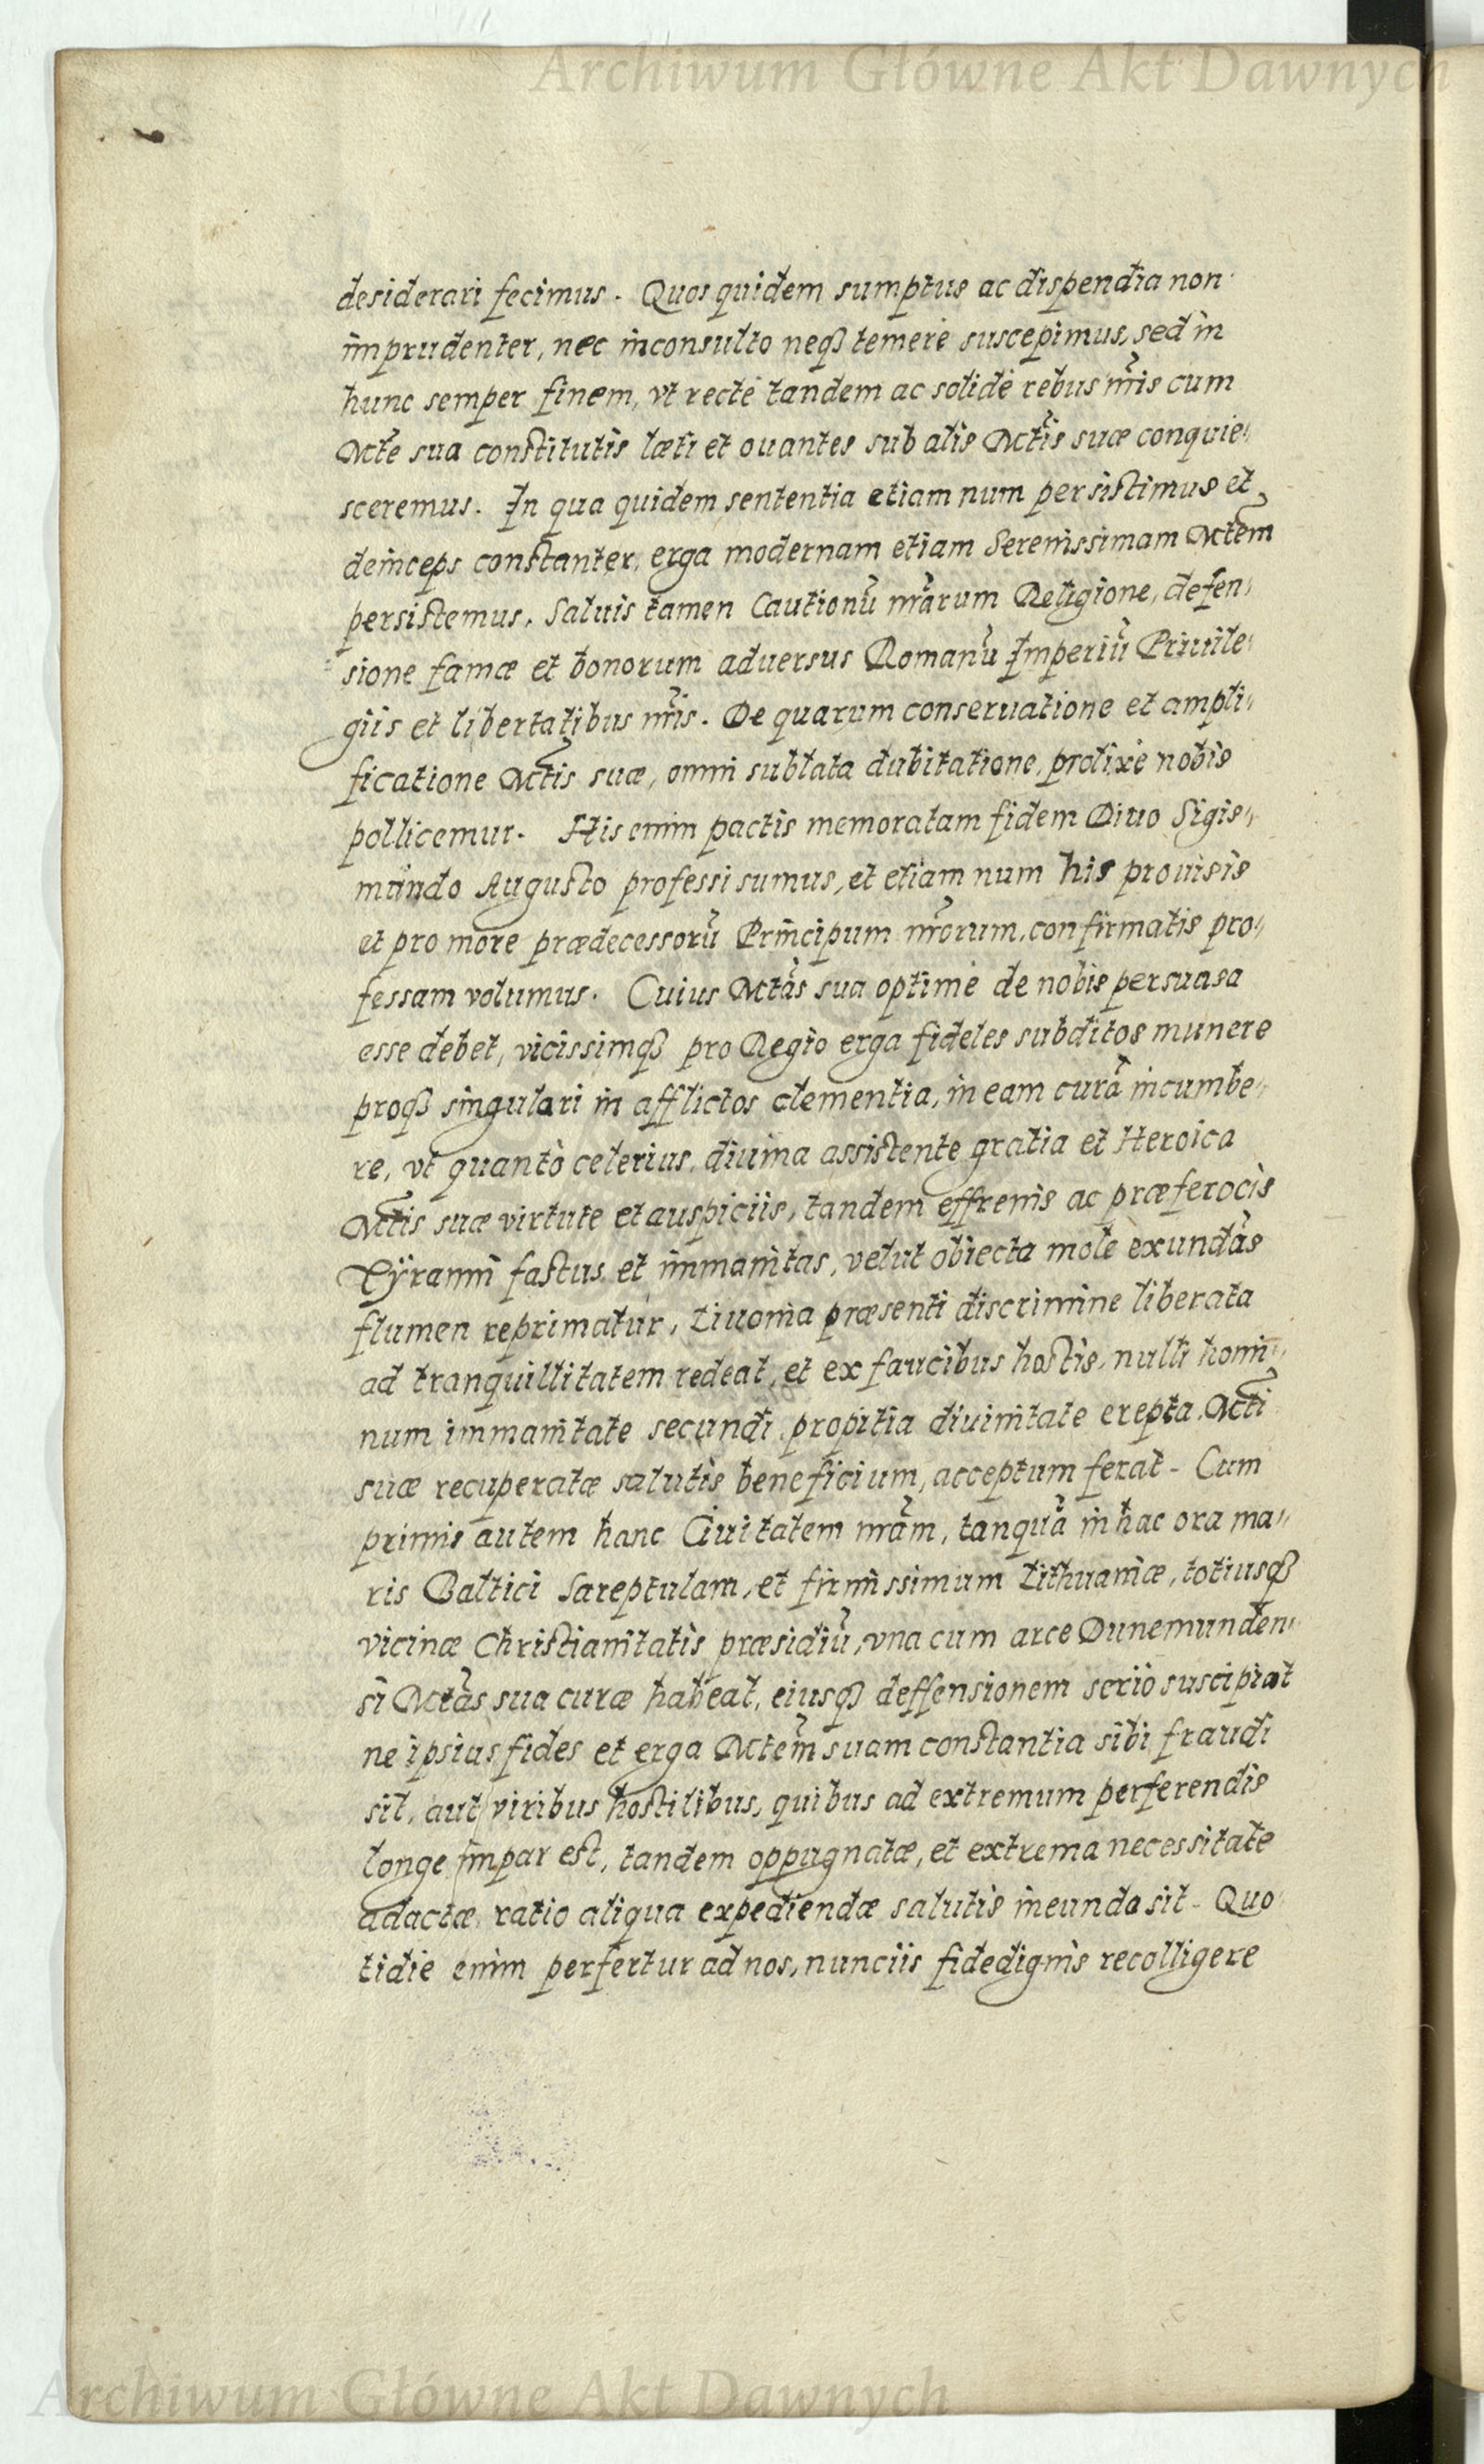 Archiwum Główne Akt Dawnych
desiderari fecimus. Quos quidem sumptus ac dispendia non
imprudenter, nec inconsulto neqꝫ temerè suscepimus, sed in
hunc semper finem, vt rectè tandem ac solidè rebus nr̃is cum
Mte sua constitutis læti et ouantes sub alis Mtis suæ conquie⸗
sceremus. In qua quidem sententia etiam num persistimus et
deinceps constanter, erga modernam etiam Serenissimam Mtem
persistemus. Saluis tamen Cautionũ nr̃arum Religione, defen⸗
sione famæ et bonorum aduersus Romanũ Imperiũ Priuile⸗
giis et libertatibus nr̃is. De quarum conseruatione et ampli⸗
ficatione Mtis suæ, omni sublata dubitatione, prolixè nobis
pollicemur. His enim pactis memoratam fidem Diuo Sigis⸗
mundo Augusto professi sumus, et etiam num his prouisis
et pro more prædecessorũ Principum nr̃orum, confirmatis pro⸗
fessam volumus. Cuius Mtas sua optimè de nobis persuasa
esse debet, vicissimqꝫ pro Regio erga fideles subditos munere
proqꝫ singulari in afflictos clementia, in eam curã incumbe⸗
re, vt quantò celerius, diuina assistente gratia et Heroica
Mtis suæ virtute et auspiciis, tandem effrenis ac præferocis
Tÿranni fastus et immanitas, velut obiecta mole exundãs
flumen reprimatur, Liuonia præsenti discrimine liberata
ad tranquillitatem redeat, et ex faucibus hostis, nulli homi⸗
num immanitate secundi, propitia diuinitate erepta, Mti
suæ recuperatæ salutis beneficium, acceptum ferat. Cum
primis autem hanc Ciuitatem nr̃am, tanquã in hac ora ma⸗
ris Baltici Sareptulam, et firmissimum Lithuaniæ, totiusqꝫ
vicinæ Christianitatis præsidiũ, vna cum arce Dunemunden⸗
si Mtas sua curæ habeat, eiusqꝫ deffensionem seriò suscipiat
ne ipsius fides et erga Mtem suam constantia sibi fraudi
sit, aut viribus hostilibus, quibus ad extremum perferendis
longe impar est, tandem oppugnatæ, et extrema necessitate
adactæ, ratio aliqua expediendæ salutis ineunda sit. Quo
tidie enim perfertur ad nos, nunciis fidedignis recolligere
Archiwum Główne Akt Dawnych